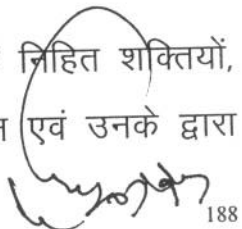 निहित शक्तियों,
एवं उनके द्वारा
188